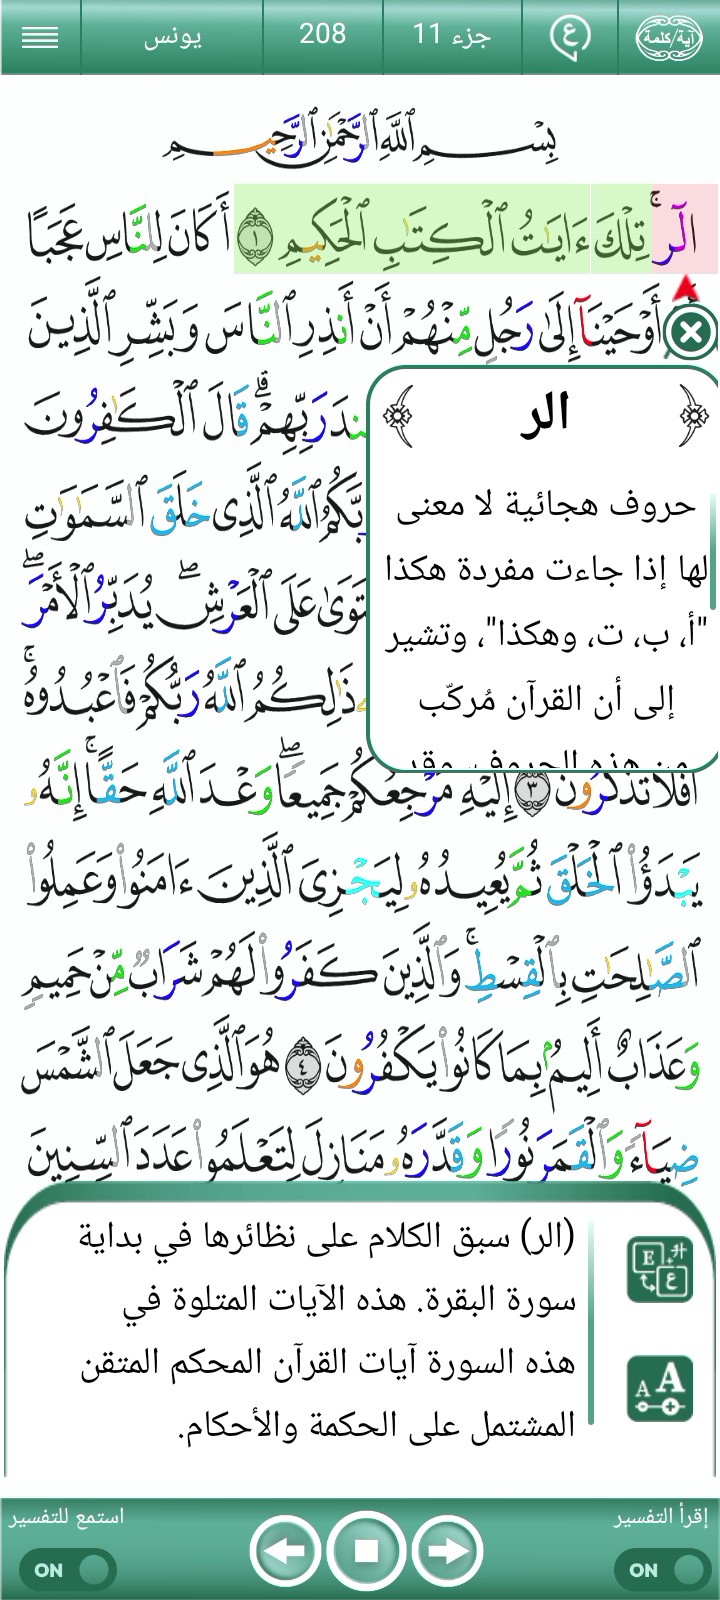 آية/كلمة ع جزء 11 208 يونس
بِسْمِ ٱللَّهِ ٱلرَّحْمَٰنِ ٱلرَّحِيمِ
الٓرۚ تِلْكَ ءَايَٰتُ ٱلْكِتَٰبِ ٱلْحَكِيمِ ١ أَكَانَ لِلنَّاسِ عَجَبًا
أَوْحَيْنَآ إِلَىٰ رَجُلٍ مِّنْهُمْ أَنْ أَنذِرِ ٱلنَّاسَ وَبَشِّرِ ٱلَّذِينَ
رَبِّهِمْۗ قَالَ ٱلْكَٰفِرُونَ
ٱللَّهُ ٱلَّذِى خَلَقَ ٱلسَّمَٰوَٰتِ
عَلَى ٱلْعَرْشِۖ يُدَبِّرُ ٱلْأَمْرَۖ
ذَٰلِكُمُ ٱللَّهُ رَبُّكُمْ فَٱعْبُدُوهُۚ
الر
حروف هجائية لا معنى
لها إذا جاءت مفردة هكذا
"أ، ب، ت، وهكذا"، وتشير
إلى أن القرآن مُركّب
من هذه الحروف، وقد
أَفَلَا تَذَكَّرُونَ ٣ إِلَيْهِ مَرْجِعُكُمْ جَمِيعًاۖ وَعْدَ ٱللَّهِ حَقًّاۚ إِنَّهُۥ
يَبْدَؤُا۟ ٱلْخَلْقَ ثُمَّ يُعِيدُهُۥ لِيَجْزِىَ ٱلَّذِينَ ءَامَنُوا۟ وَعَمِلُوا۟
ٱلصَّٰلِحَٰتِ بِٱلْقِسْطِۚ وَٱلَّذِينَ كَفَرُوا۟ لَهُمْ شَرَابٌ مِّنْ حَمِيمٍ
وَعَذَابٌ أَلِيمٌۢ بِمَا كَانُوا۟ يَكْفُرُونَ ٤ هُوَ ٱلَّذِى جَعَلَ ٱلشَّمْسَ
ضِيَآءً وَٱلْقَمَرَ نُورًا وَقَدَّرَهُۥ مَنَازِلَ لِتَعْلَمُوا۟ عَدَدَ ٱلسِّنِينَ
(الر) سبق الكلام على نظائرها في بداية
سورة البقرة. هذه الآيات المتلوة في
هذه السورة آيات القرآن المحكم المتقن
المشتمل على الحكمة والأحكام.
E ع
A A
إقرأ التفسير استمع للتفسير
ON ON